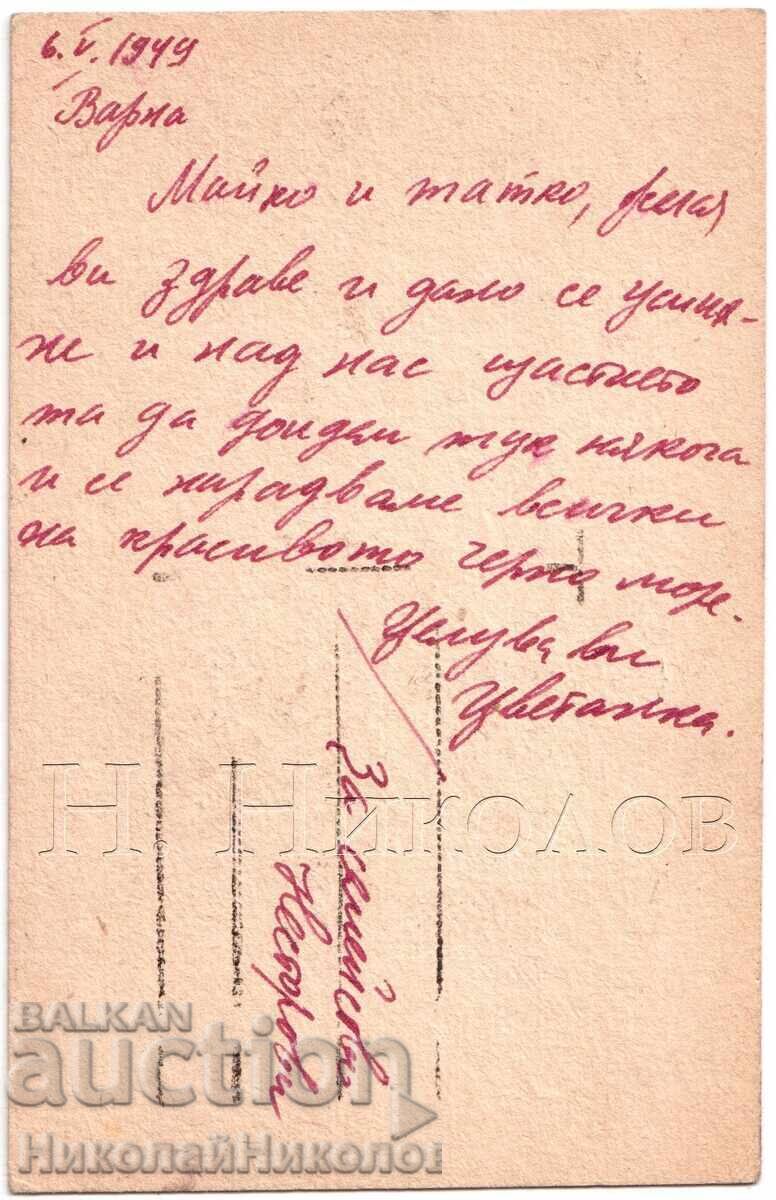 6.V.1949
Варна
Майко и татко,
ви здраве и дано се усмих-
не и над нас щастието
та да дойдем тук някога
и се нарадваме всички
на красивото черно море.
Целува ви
Цветанка.
За
Н. Николов
BALKAN
auction
НиколайНиколов